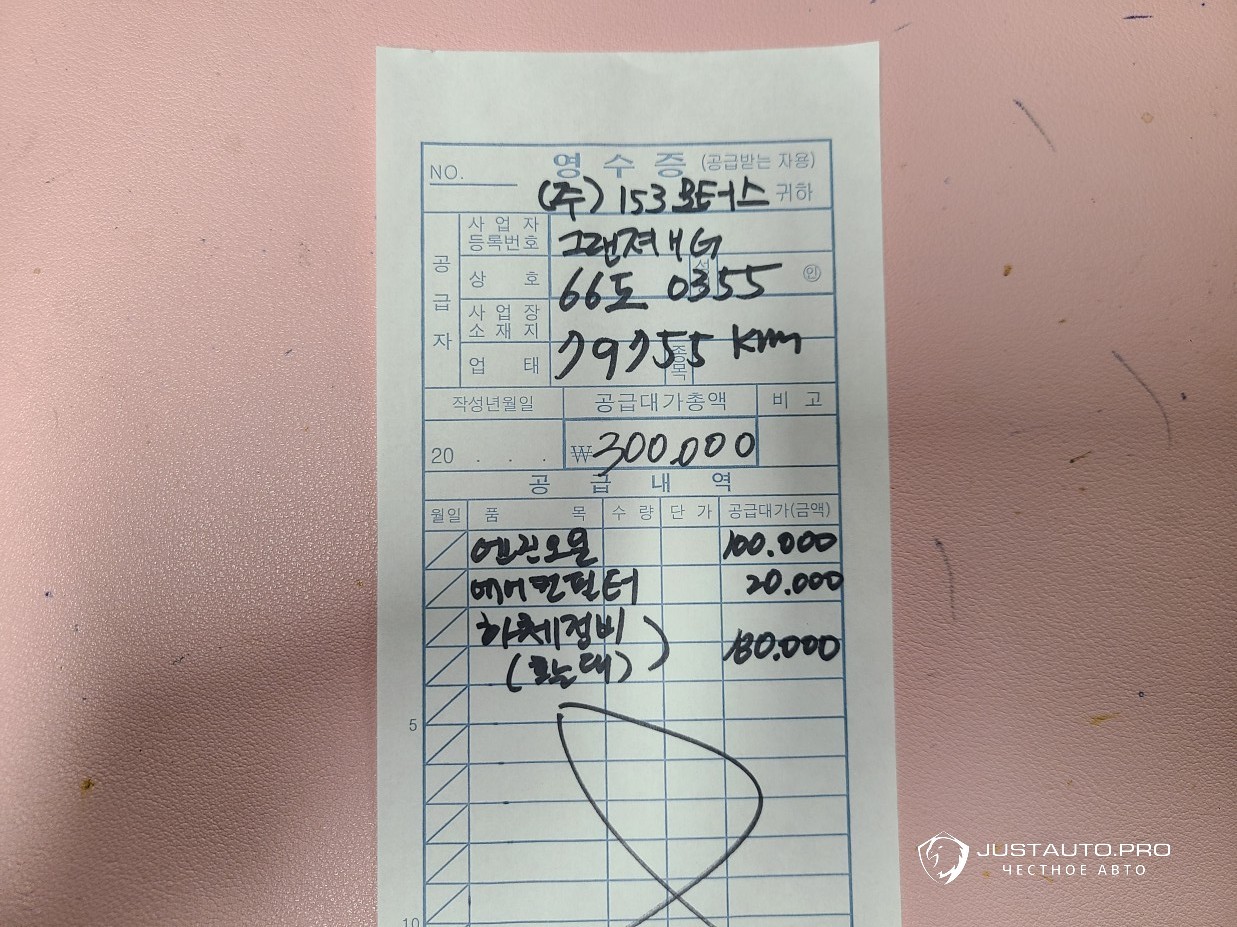 NO. 영 수 증 (공급받는 자용)
(주) 153모터스 귀하
공급자
사 업 자 등록번호 그랜져HG
상 호 66도 0355 성 인
사 업 장 소 재 지
업 태 79755 km 종목
작성년월일 공급대가총액 비 고
20 . . . ₩300.000
공 급 내 역
월일 품 목 수 량 단 가 공급대가(금액)
엔진오일 100.000
에어컨필터 20.000
하체정비
180.000
5
10
JUSTAUTO.PRO
ЧЕСТНОЕ АВТО